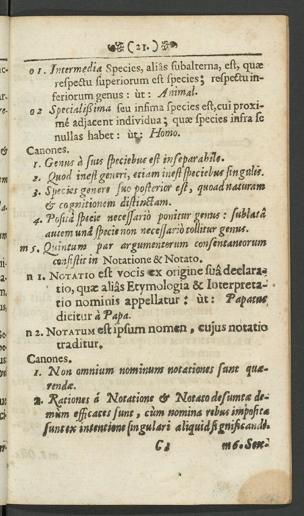 (21.)
o 1. Intermedia Species, aliâs subalterna, est, quæ
respectu superiorum est species; respectu in-
feriorum genus: ùt: Animal.
o 2 Specialissima seu infima species est, cui proxi-
mè adjacent individua; quæ species infra se
nullas habet: ùt: Homo.
Canones.
1. Genus à suis speciebus est inseparabile.
2. Quod inest generi, etiam inest speciebus singulis.
3. Species genere suo posterior est, quoad naturam
& cognitionem distinctam.
4. Positâ specie necessariò ponitur genus: sublatâ
autem unâ specie non necessariò tollitur genus.
m 5. Quintum par argumentorum consentaneorum
consistit in Notatione & Notato.
n 1. NOTATIO est vocis ex origine suâ declara-
tio, quæ aliâs Etymologia & Interpreta-
tio nominis appellatur: ùt: Papatus
dicitur à Papa.
n 2. NOTATUM est ipsum nomen, cujus notatio
traditur.
Canones.
1. Non omnium nominum notationes sunt quæ-
rendæ.
2. Rationes à Notatione & Notato desumtæ de-
mùm efficaces sunt, cùm nomina rebus imposita
sunt ex intentione singulari aliquid significandi.
C3 m 6. Sex-